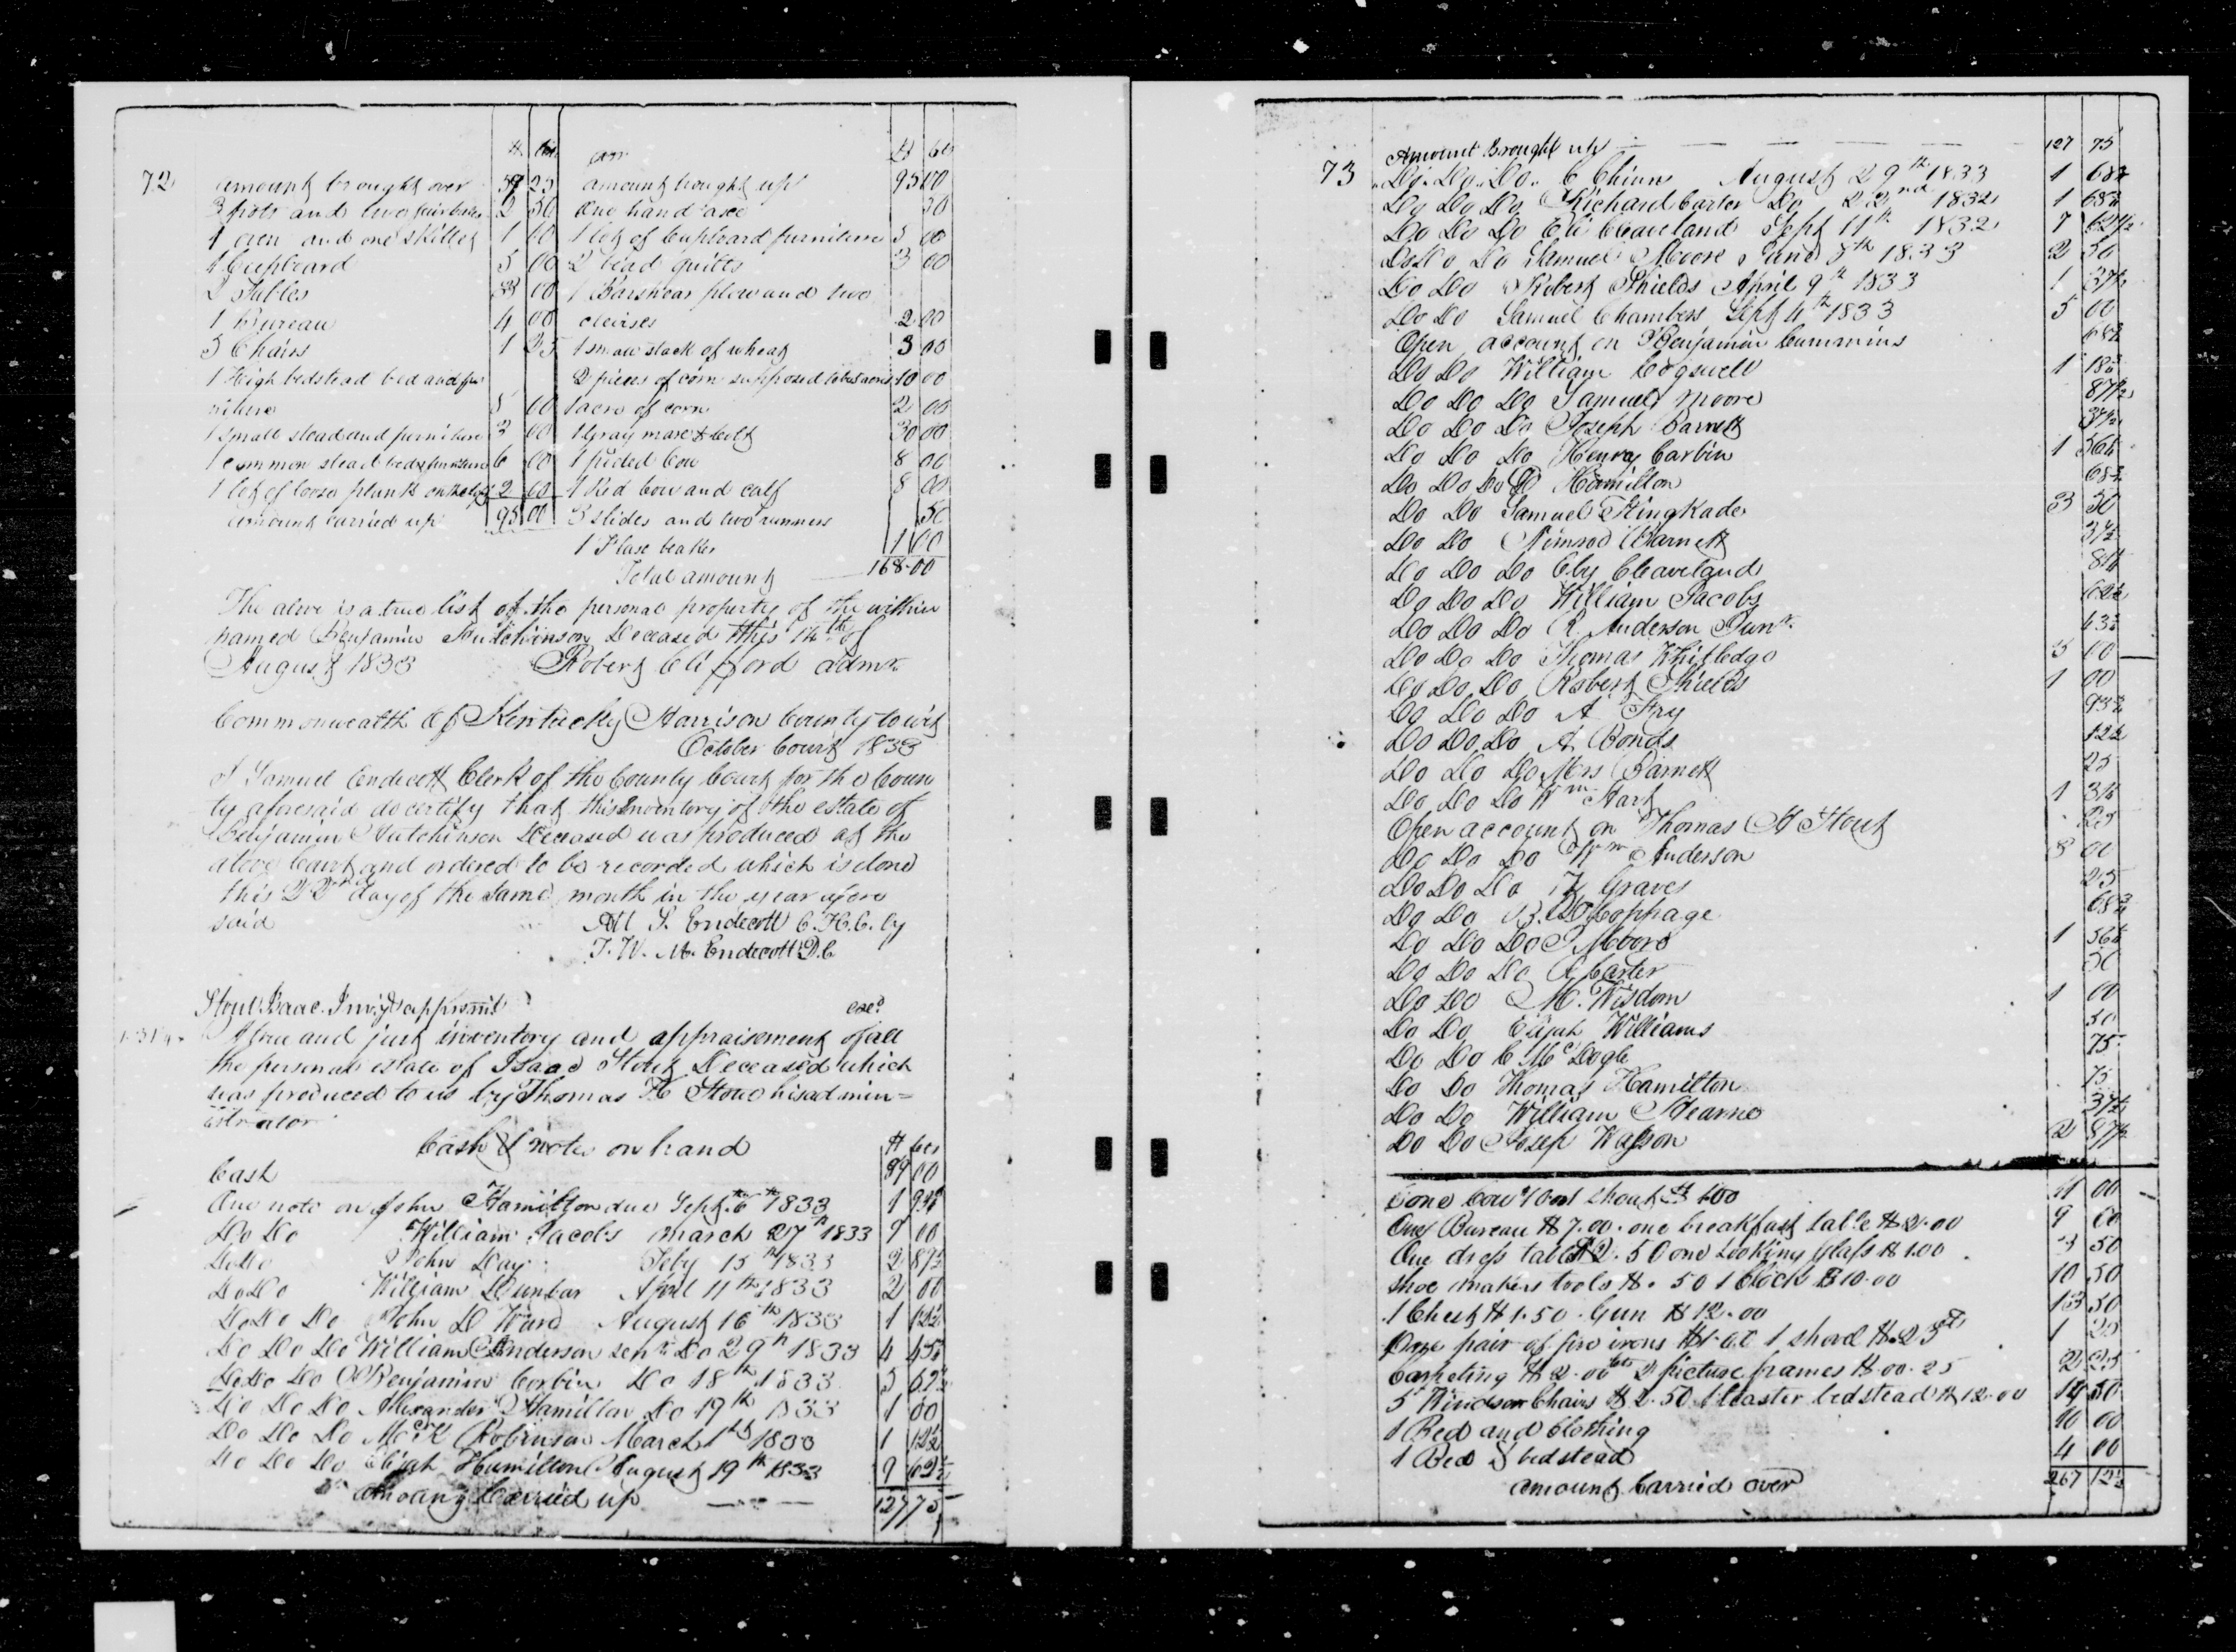 72
$ Cts
amount brought over 59 25
3 pots and two 2 50
1 oven and one skillet 1 00
1 Cupboard 5 00
2 Tables 3 00
1 Bureau 4 00
5 Chairs 1 25
1 High bedstead bed and fur
niture 5 00
1 small stead and furniture 3 00
1 common stead bed & furniture 6 00
1 lot of loose plank on the loft 2 00
amount carried up 95 00
$ Cts
amount brought up 95 00
One hand axe 50
1 lot of Cupboard furniture 5 00
2 bead quilts 3 00
1 Barshear plow and two
clevises 2 00
1 small stack of wheat 3 00
2 pieces of corn supposed to be acres 10 00
1 acre of corn 2 00
1 Gray mare & Colt 30 00
1 pided Cow 8 00
1 Red Cow and calf 8 00
3 slides and two runners 50
1 Flax beaker 1 00
Total amount 168.00
The above is a true list of the personal property of the within
named Benjamin Hutchinson Deceased this 14th of
August 1833 Robert Clifford admr.
Commonwealth of Kentucky Harrison County towit
October Court 1833
I Samuel Endecott Clerk of the County Court for the Coun
ty aforesaid do certify that this Inventory of the estate of
Benjamin Hutchinson Deceased was produced at the
above Court and ordered to be recorded which is done
this 22nd day of the same month in the year afore
said Att S. Endecott C.H.C. by
T. W. M. Endecott D.C
Stout Isaac. Invy & appraismt exd
A true and just inventory and appraisement of all
the personal estate of Isaac Stout Deceased which
was produced to us by Thomas H Stout his admin=
istrator
Cash & notes on hand $ Cts
Cash 89 00
One note on John Hamilton due Sept. 6th 1833 1 93¾
Do Do William Jacobs March 27th 1833 9 00
Do Do John Day Feby 15th 1833 2 87½
Do Do William Dunbar April 11th 1833 2 00
Do Do Do John D Ward August 16th 1833 1 12½
Do Do Do William Anderson senr Do 29th 1833 4 43¾
Do Do Do Benjamin Corbin Do 18th 1833 5 62½
Do Do Do Alexander Hamilton Do 19th 1833 1 00
Do Do Do McK Robinson March 1st 1833 1 12½
Do Do Do Elijah Hamilton August 19th 1833 9 62½
Amount Carried up 127 75
73
Amount Brought up 127 75
Do. Do. Do. C Chinn August 29th 1833 1 68¾
Do Do Do Richard Carter Do 22nd 1832 1 68¾
Do Do Do Eli Cleaveland Sept 11th 1832 7 62½
Do Do Do Samuel Moore June 8th 1833 2 50
Do Do Robert Shields April 9th 1833 1 37½
Do Do Samuel Chambers Sept 4th 1833 5 00
Open account on Benjamin Cummins 68¾
Do Do William Cogswell 1 18¾
Do Do Do Samuel Moore 87½
Do Do Do Joseph Barnett 37½
Do Do Do Henry Corbin 1 56¼
Do Do Do D Hamilton 68¾
Do Do Samuel Kingkade 3 50
Do Do Nimrod Barnett 37½
Do Do Do Eby Cleaveland 81¼
Do Do Do William Jacobs 62½
Do Do Do R. Anderson Junr. 43¾
Do Do Do Thomas Whitledge 5 00
Do Do Do Robert Shields 1 00
Do Do Do A Fry 93¾
Do Do Do A. Bonds 12½
Do Do Do Mrs Barnett 25
Do Do Do Wm Hart 1 31¼
Open account on Thomas H Stout 25
Do Do Do Wm Anderson 8 00
Do Do Do Graves 25
Do Do B. Cophage 68¾
Do Do Do Moore 1 56¼
Do Do Do Carter 50
Do Do M. Wisdom 1 00
Do Do Elijah Williams 50
Do Do C McDogle 75
Do Do Thomas Hamilton 75
Do Do William Hearne 37½
Do Do Josep Watson 2 87½
one Cow $10 one shout $1.00 11 00
One Bureau $7.00. one breakfast table $2.00 9 00
One dress table $2.50 one Looking Glass $1.00 3 50
Shoe makers tools $.50 1 Clock $10.00 10 50
1 Chest $1.50. Gun $12.00 13 50
One pair of fire irons $1.00 1 shovel $.25 1 25
Carpeting $2.00 2 picture frames $.00.25 2 25
5 Windsor Chairs $2.50 1 teaster bedstead $12.00 14 50
1 Bed and Clothing 10 00
1 Bed & bedstead 4 00
amount Carried over 267 12½